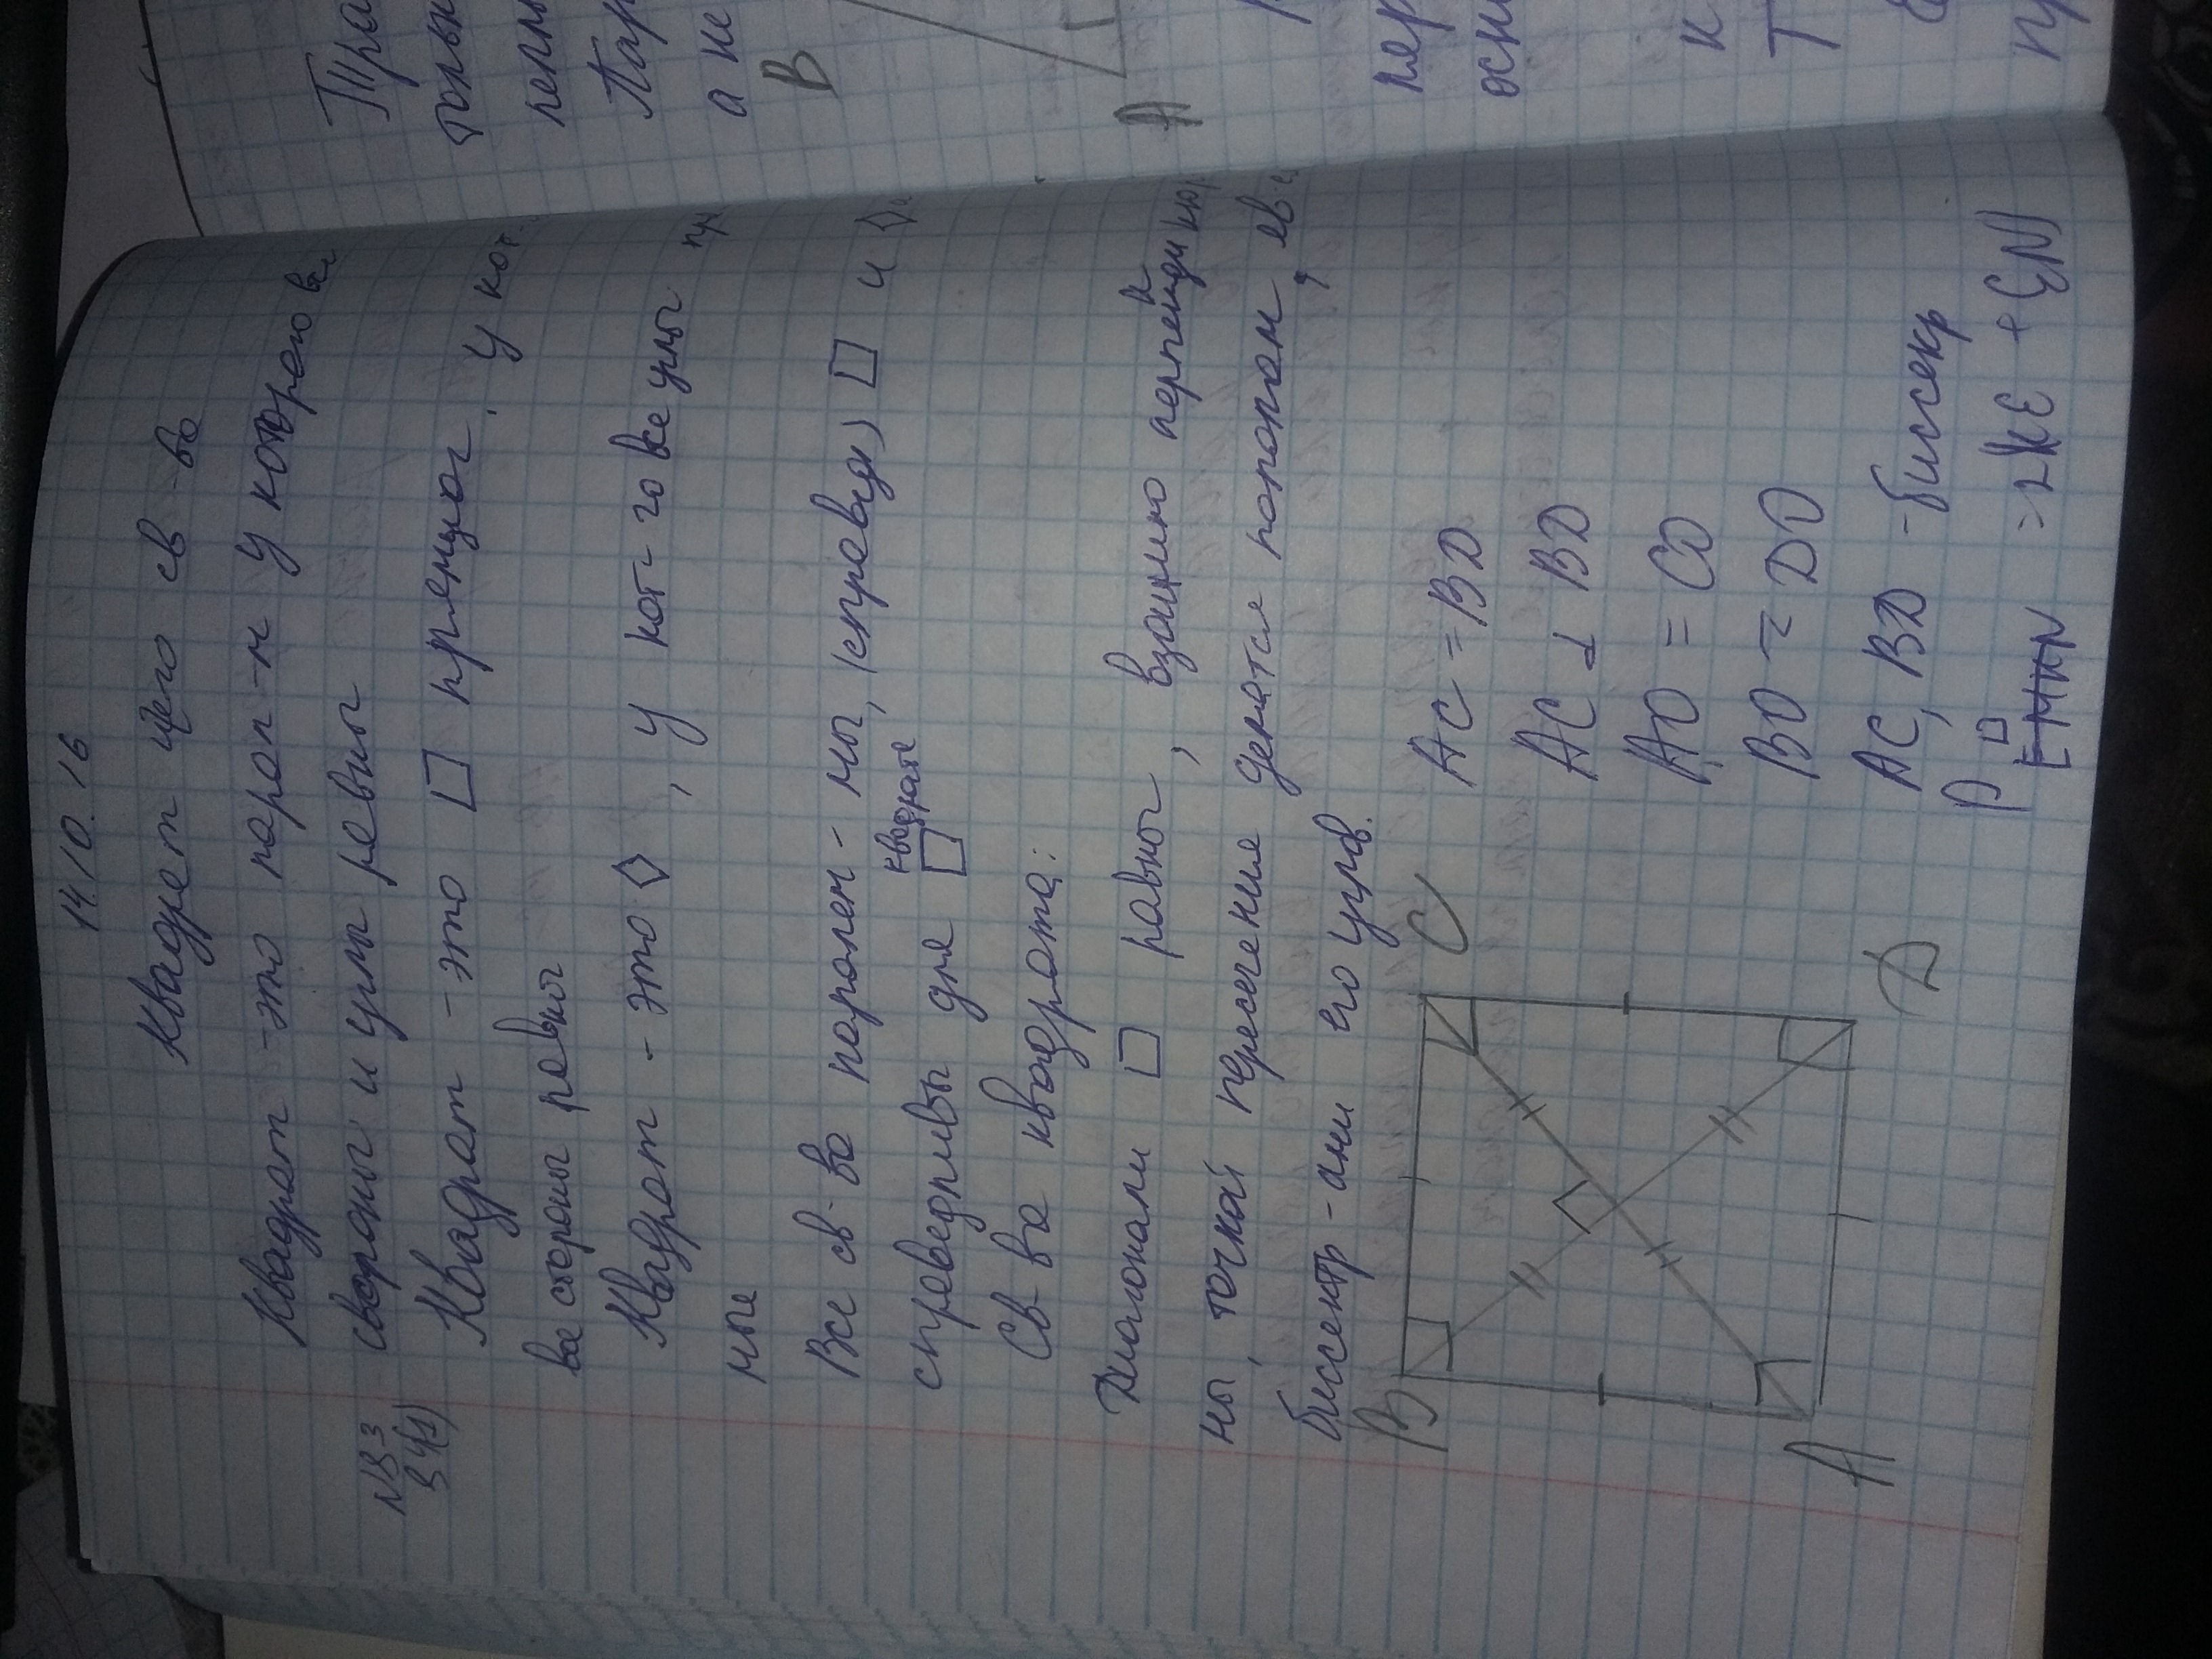 14.10.16
Квадрат и его св-во
Квадрат - это парал-м у которого все
№33
34(1)
стороны и углы равны
Квадрат - это □ прямоуг. у кот.
все стороны равны
Квадрат - это ◇, у кот-го все углы пр
мые
Все св-ва паралел-мы, (справед) □ и ◇
справедливы для □ квадрата
Св-ва квадрата:
Диагонали □ равны, взаимно перпендикуляр
ны, точкой пересечения делятся пополам, явл.
биссектр-ами его углов.
B C
A D
AC = BD
AC ⊥ BD
AO = CO
BO = DO
AC, BD - биссекр
P□ EMKN = 2(KE + EN)
Тра
а не
B
A
осн
к
Т